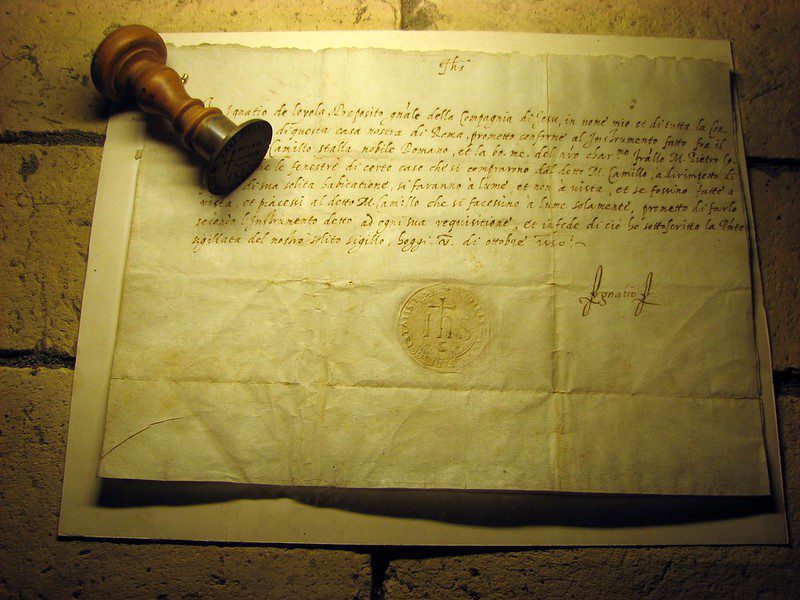 Jhs
Ignatio de loyola, Preposito gñale della Compagnia di Jesu, in nome mio et di tutta la Con-
di questa casa nostra di Roma, prometto conforme al Instrumento fatto fra il
Camillo stalla nobile Romano, et la bo. me. del nr̃o char.mo frãllo M. Pietro Co-
le fenestre di certe case che si comprarono dal detto M. Camillo, a dirimpetto di
di sua solita habitatione, si faranno a lume et non a vista, et se fossino fatte a
vista, et piacessi al detto M. Camillo che si facessino a lume solamente, prometto di farlo
secõdo l'Instrumento detto, ad ogni sua requisitione, et in fede di ciò ho sottoscritto la Pñte
sigillata del nostro solito sigillo, hoggi di ottobre 1550
Ignatio
ihs